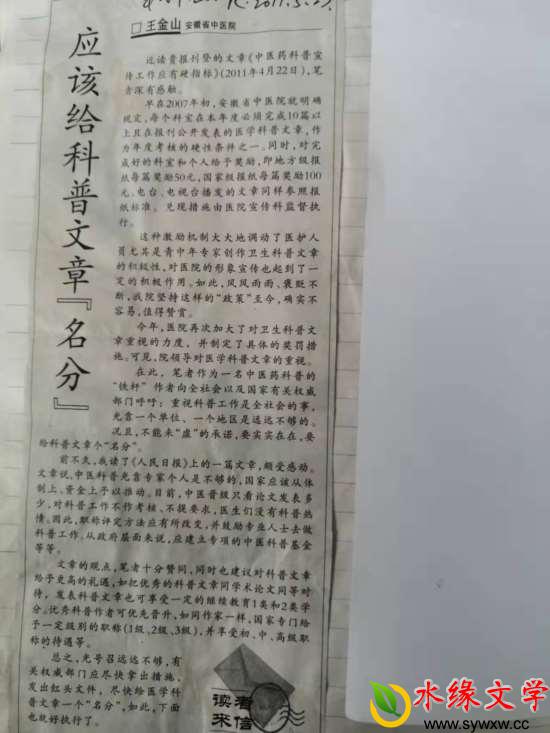 2011.5.23.
□王金山 安徽省中医院
应该给科普文章『名分』
近读贵报刊登的文章《中医药科普宣
传工作应有硬指标》(2011年4月22日),笔
者深有感触。
早在2007年初,安徽省中医院就明确
规定,每个科室在本年度必须完成10篇以
上且在报刊公开发表的医学科普文章,作
为年度考核的硬性条件之一。同时,对完
成好的科室和个人给予奖励,即地方级报
纸每篇奖励50元,国家级报纸每篇奖励100
元,电台、电视台播发的文章同样参照报
纸标准。兑现措施由医院宣传科监督执
行。
这种激励机制大大地调动了医护人
员尤其是青中年专家创作卫生科普文章
的积极性,对医院的形象宣传也起到了一
定的积极作用。如此,风风雨雨、褒贬不
断,我院坚持这样的“政策”至今,确实不
容易,值得赞赏。
今年,医院再次加大了对卫生科普文
章重视的力度,并制定了具体的奖罚措
施。可见,院领导对医学科普文章的重视。
在此,笔者作为一名中医药科普的
“铁杆”作者向全社会以及国家有关权威
部门呼吁:重视科普工作是全社会的事,
光靠一个单位、一个地区是远远不够的。
况且,不能来“虚”的承诺,要实实在在,要
给科普文章个“名分”。
前不久,我读了《人民日报》上的一篇文章,颇受感动。
文章说,中医科普光靠专家个人是不够的,国家应该从体
制上、资金上予以推动。目前,中医晋级只看论文发表多
少,对科普工作不作考核、不提要求,医生们没有科普热
情。因此,职称评定方法应有所改变,并鼓励专业人士去做
科普工作。从政府层面来说,应建立专项的中医科普基金
等等。
文章的观点,笔者十分赞同,同时也建议对科普文章
给予更高的礼遇,如把优秀的科普文章同学术论文同等对
待,发表科普文章也可享受一定的继续教育1类和2类学
分。优秀科普作者可优先晋升,如同作家一样,国家专门给
予一定级别的职称(1级、2级、3级),并享受初、中、高级职
称的待遇等。
总之,光号召远远不够,有
关权威部门应尽快拿出措施,
发出红头文件,尽快给医学科
普文章一个“名分”,如此,下面
也就好执行了。
读者
来信
水缘文学
www.sywxw.cc